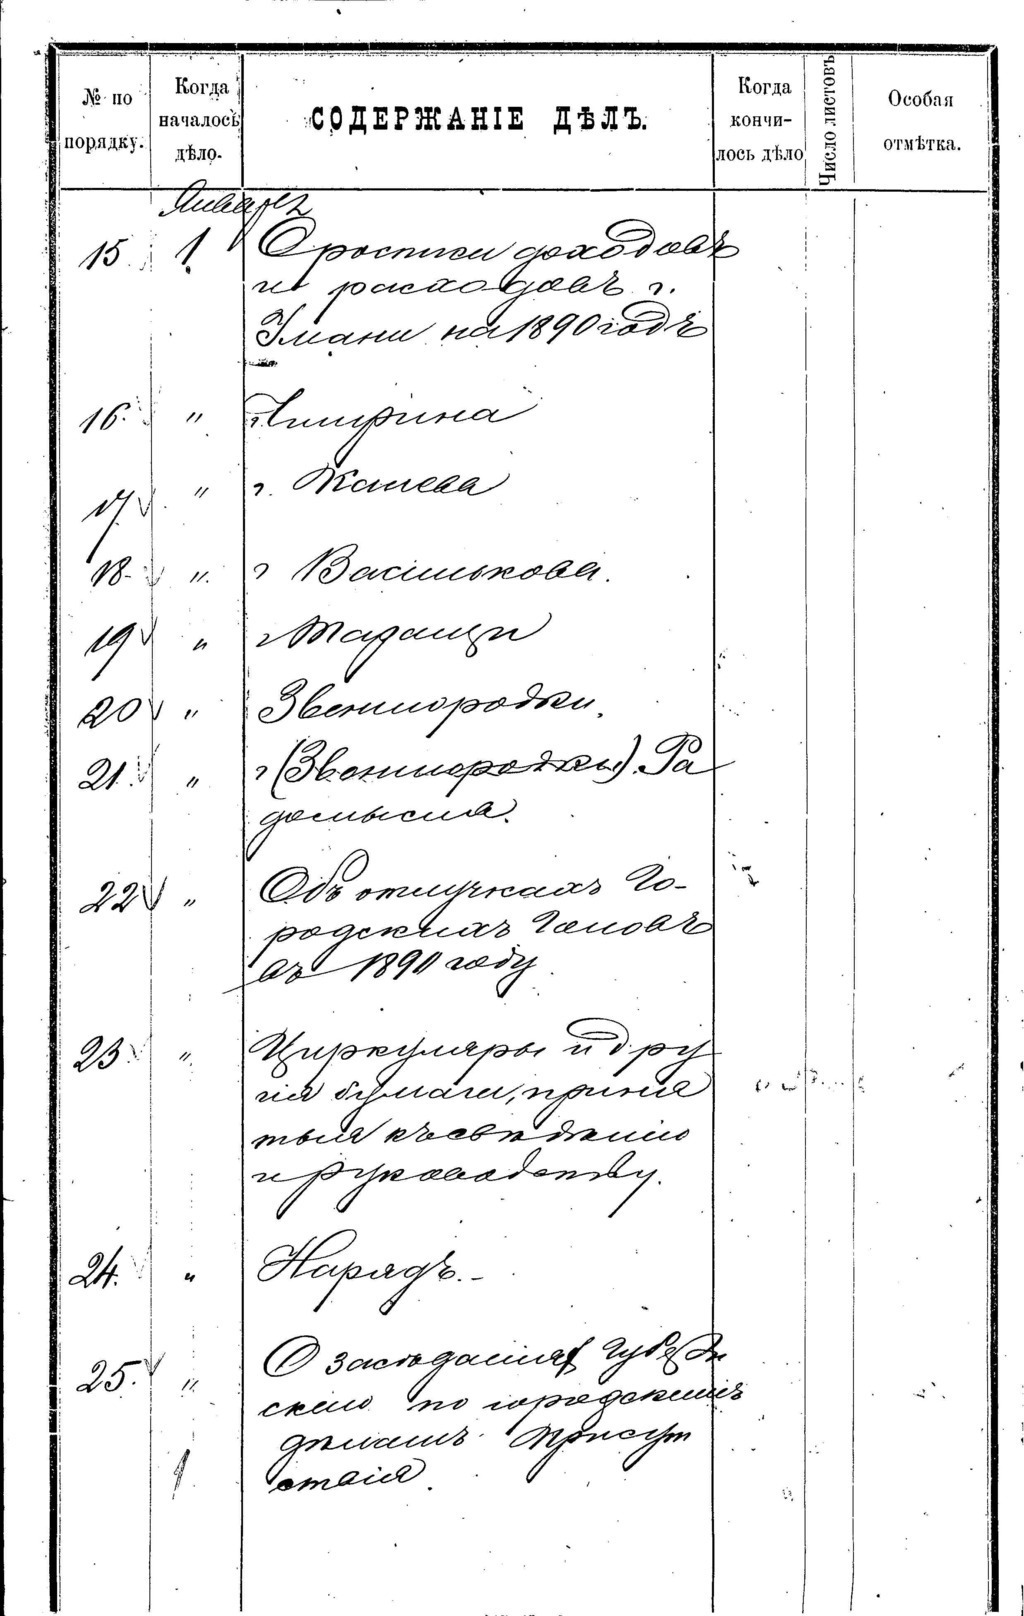 № по порядку.
Когда началось дѣло.
СОДЕРЖАНІЕ ДѢЛЪ.
Когда кончилось дѣло
Число листовъ
Особая отмѣтка.
Январь
15. 1 О росписи доходовъ
и расходовъ г.
Умани на 1890 годъ
16. " г. Чигирина
17. " г. Канева
18. " г Василькова.
19 " г Таращи
20 " Звенигородки.
21. " г (Звенигородки). Ра
домысла.
22 " Объ отлучкахъ Го-
родскихъ Головъ
въ 1890 году
23 " Циркуляры и дру
гія бумаги, приня
тыя къ свѣдѣнію
и руководству.
24. " Нарядъ.-
25. " О засѣданіях Губерн
скаго по городскимъ
дѣламъ Присут
ствія.